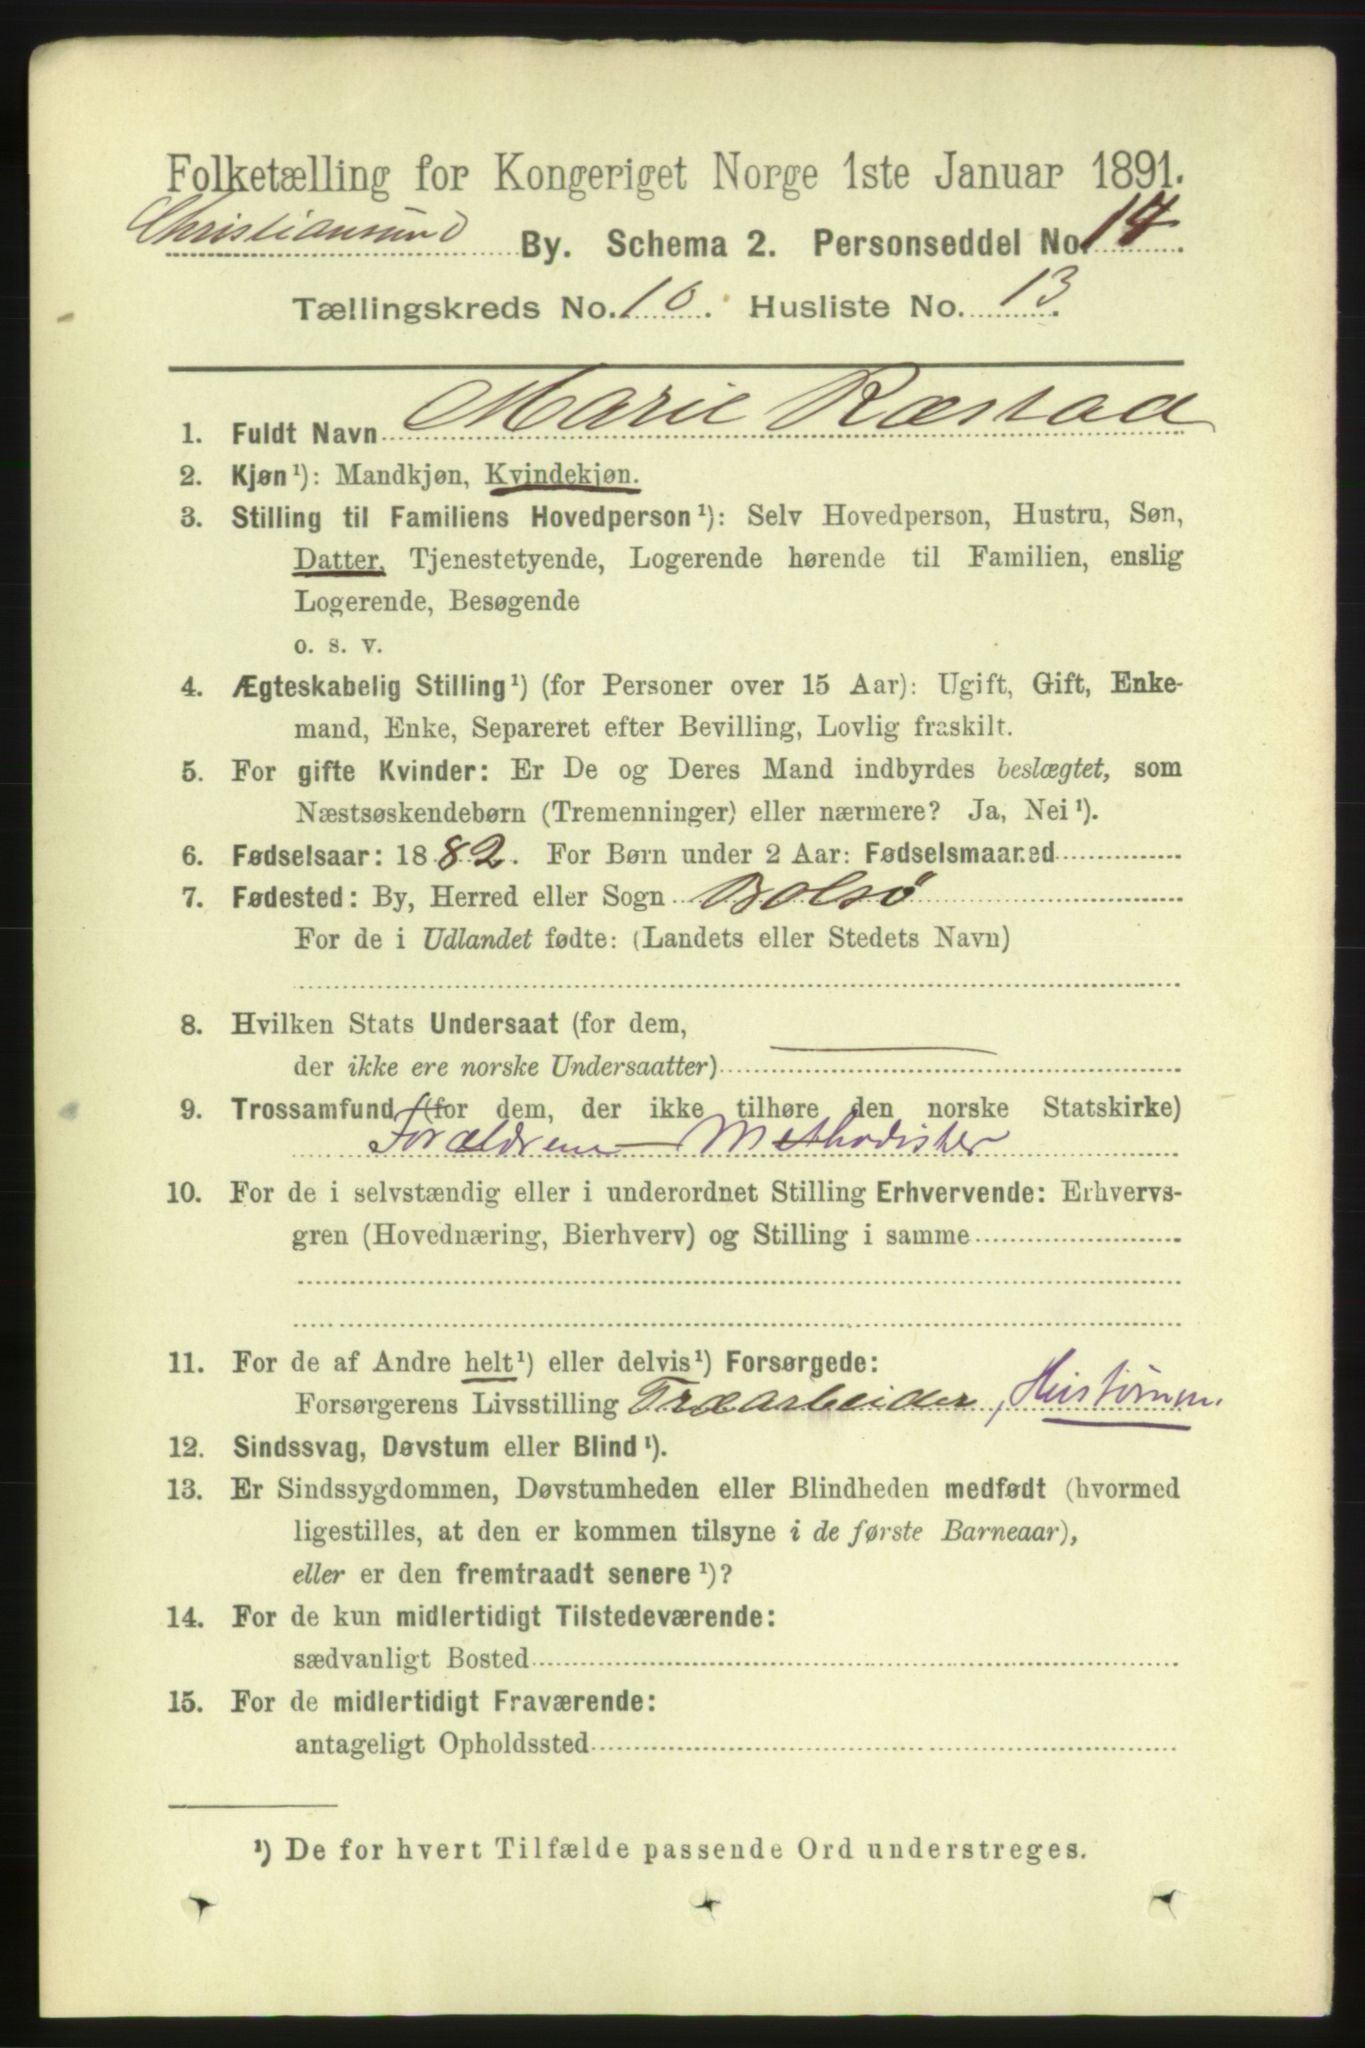 Folketælling for Kongeriget Norge 1ste Januar 1891.
Christiansund By. Schema 2. Personseddel No. 17
Tællingskreds No. 10. Husliste No. 13.
1. Fuldt Navn Marie Ræstad
2. Kjøn¹): Mandkjøn, Kvindekjøn.
3. Stilling til Familiens Hovedperson¹): Selv Hovedperson, Hustru, Søn,
Datter, Tjenestetyende, Logerende hørende til Familien, enslig
Logerende, Besøgende
o. s. v.
4. Ægteskabelig Stilling¹) (for Personer over 15 Aar): Ugift, Gift, Enke-
mand, Enke, Separeret efter Bevilling, Lovlig fraskilt.
5. For gifte Kvinder: Er De og Deres Mand indbyrdes beslægtet, som
Næstsøskendebørn (Tremenninger) eller nærmere? Ja, Nei¹).
6. Fødselsaar: 1882. For Børn under 2 Aar: Fødselsmaaned
7. Fødested: By, Herred eller Sogn Bolsø
For de i Udlandet fødte: (Landets eller Stedets Navn)
8. Hvilken Stats Undersaat (for dem,
der ikke ere norske Undersaatter)
9. Trossamfund (for dem, der ikke tilhøre den norske Statskirke)
Forældrene Methodister
10. For de i selvstændig eller i underordnet Stilling Erhvervende: Erhvervs-
gren (Hovednæring, Bierhverv) og Stilling i samme
11. For de af Andre helt¹) eller delvis¹) Forsørgede:
Forsørgerens Livsstilling Træarbeider, Hustømm.
12. Sindssvag, Døvstum eller Blind¹).
13. Er Sindssygdommen, Døvstumheden eller Blindheden medfødt (hvormed
ligestilles, at den er kommen tilsyne i de første Barneaar),
eller er den fremtraadt senere¹)?
14. For de kun midlertidigt Tilstedeværende:
sædvanligt Bosted
15. For de midlertidigt Fraværende:
antageligt Opholdssted
¹) De for hvert Tilfælde passende Ord understreges.